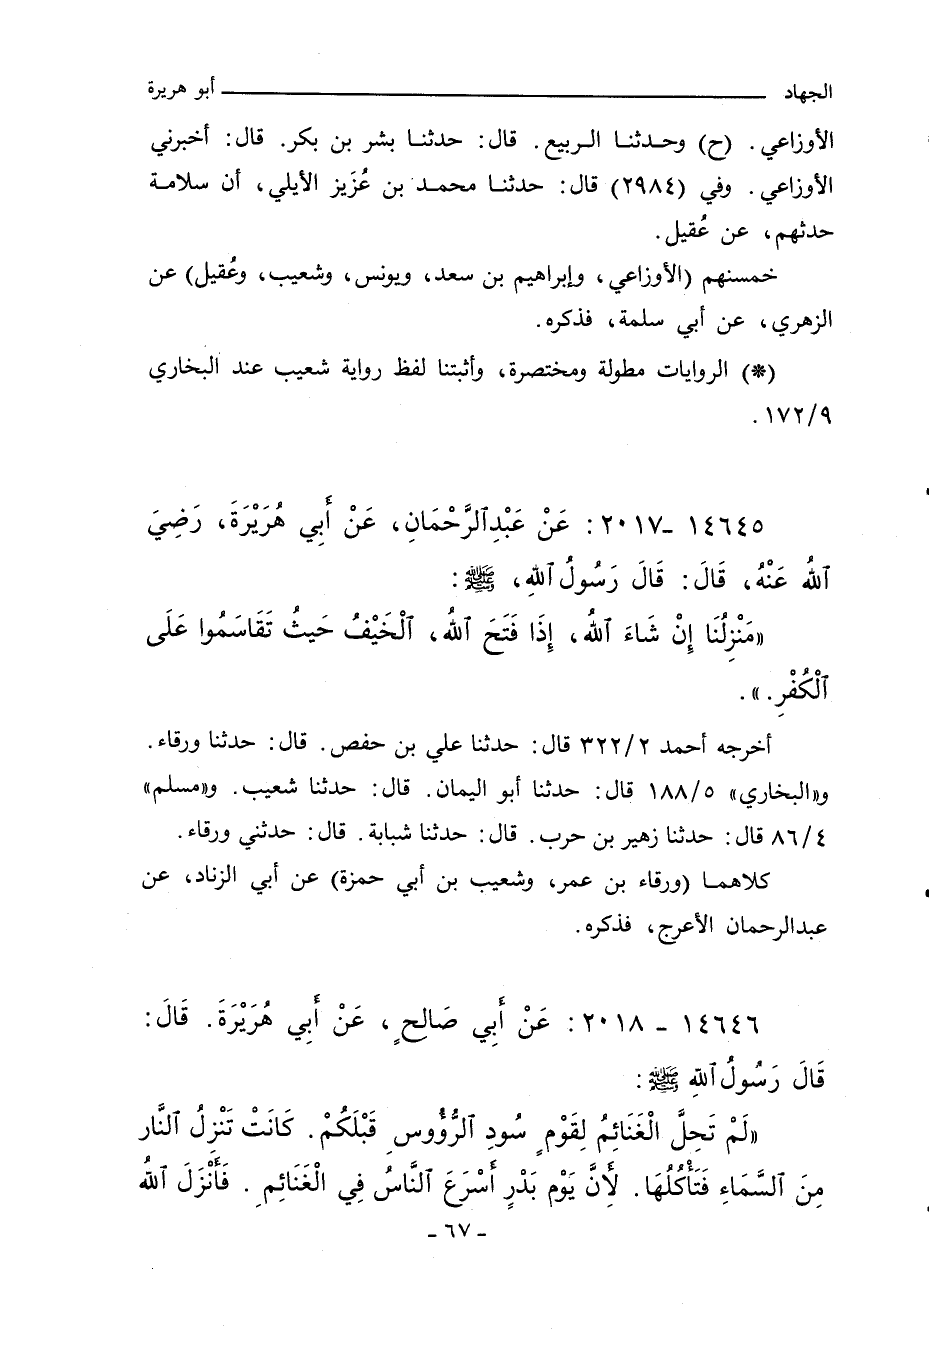 الجهاد ــــــ أبو هريرة
الأوزاعي. (ح) وحدثنا الربيع. قال: حدثنا بشر بن بكر. قال: أخبرني
الأوزاعي. وفي (٢٩٨٤) قال: حدثنا محمد بن عُزَيز الأيلي، أن سلامة
حدثهم، عن عُقيل.
خمستهم (الأوزاعي، وإبراهيم بن سعد، ويونس، وشعيب، وعُقيل) عن
الزهري، عن أبي سلمة، فذكره.
(*) الروايات مطولة ومختصرة، وأثبتنا لفظ رواية شعيب عند البخاري
١٧٢/٩.
١٤٦٤٥ -٢٠١٧: عَنْ عَبْدِالرَّحْمَانِ، عَنْ أَبِي هُرَيْرَةَ، رَضِيَ
اللهُ عَنْهُ، قَالَ: قَالَ رَسُولُ اللهِ، ﷺ:
«مَنْزِلُنَا إِنْ شَاءَ اللهُ، إِذَا فَتَحَ اللهُ، الْخَيْفُ حَيثُ تَقَاسَمُوا عَلَى
الْكُفْرِ.».
أخرجه أحمد ٣٢٢/٢ قال: حدثنا علي بن حفص. قال: حدثنا ورقاء.
و«البخاري» ١٨٨/٥ قال: حدثنا أبو اليمان. قال: حدثنا شعيب. و«مسلم»
٨٦/٤ قال: حدثنا زهير بن حرب. قال: حدثنا شبابة. قال: حدثني ورقاء.
كلاهما (ورقاء بن عمر، وشعيب بن أبي حمزة) عن أبي الزناد، عن
عبدالرحمان الأعرج، فذكره.
١٤٦٤٦ - ٢٠١٨: عَنْ أَبِي صَالحٍ، عَنْ أَبِي هُرَيْرَةَ. قَالَ:
قَالَ رَسُولُ اللهِ ﷺ:
«لَمْ تَحِلَّ الْغَنَائِمُ لِقَوْمٍ سُودِ الرُّؤُوسِ قَبْلَكُمْ. كَانَتْ تَنْزِلُ النَّار
مِنَ السَّمَاءِ فَتَأْكُلُهَا. لأَنَّ يَوْم بَدْرٍ أَسْرَعَ النَّاسُ فِي الْغَنَائِمِ. فَأَنْزَلَ اللهُ
- ٦٧ -